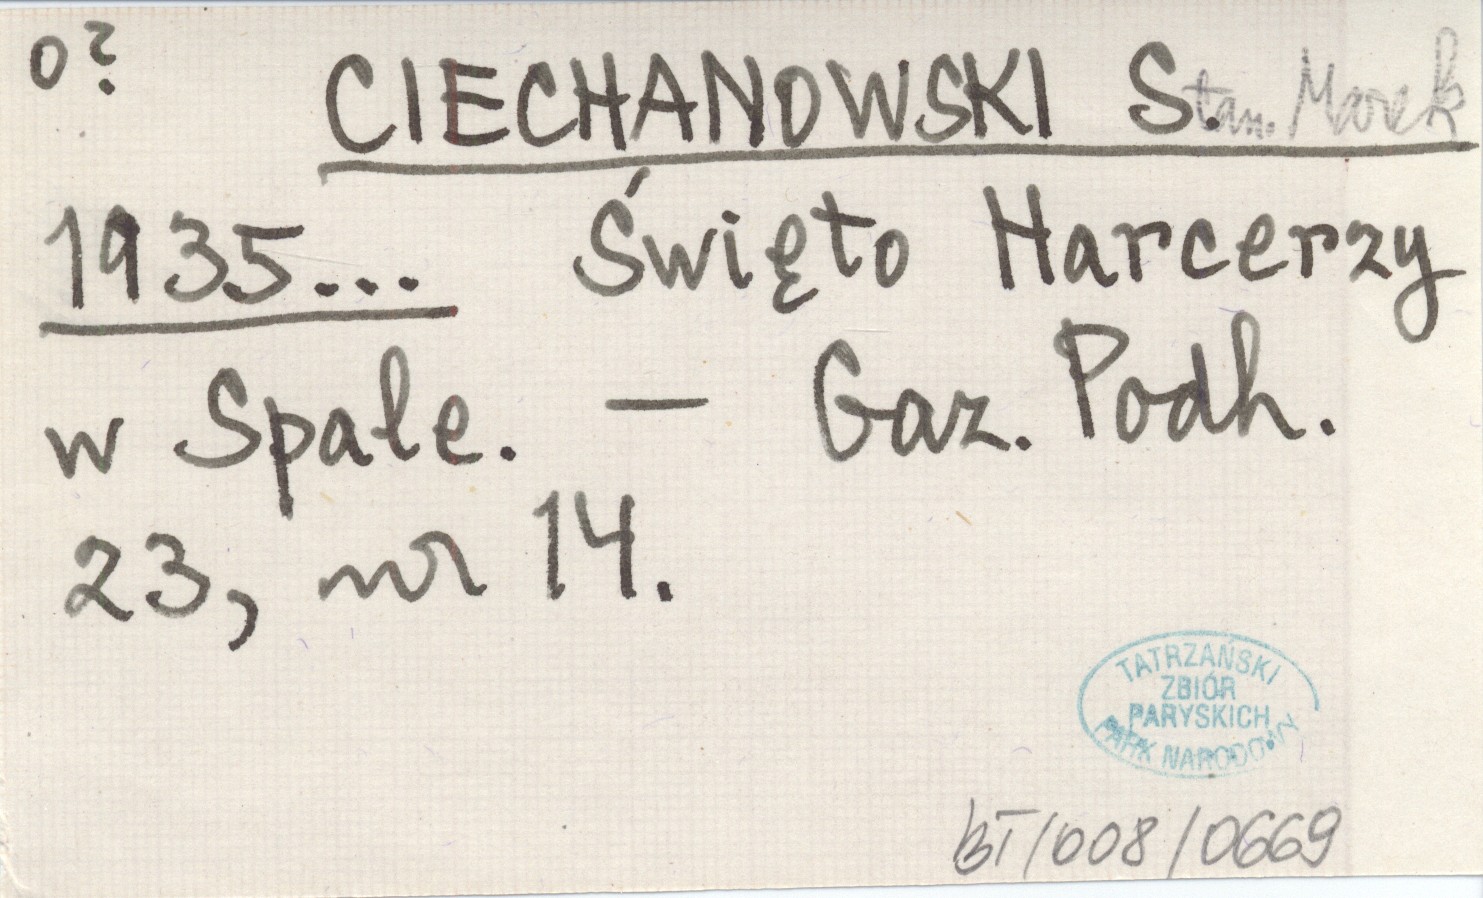 o?
CIECHANOWSKI S.tan. Marek
1935... Święto Harcerzy
w Spale. — Gaz. Podh.
23, nr 14.
TATRZAŃSKI
ZBIÓR
PARYSKICH
PARK NARODOWY
BT/008/0669